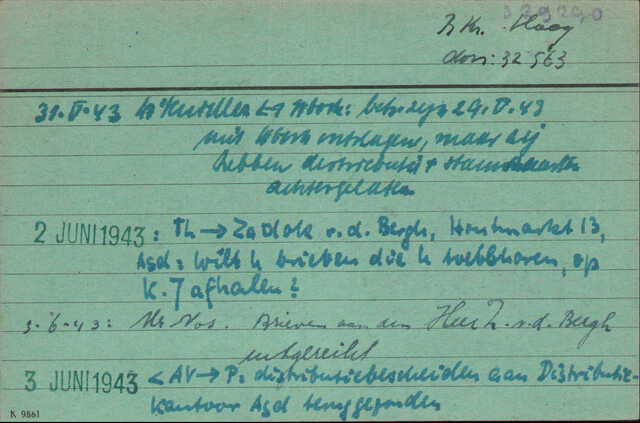 329290
Kr. Haag
doss: 32 563
31.V.43 betr. zijn 29.V.43
uit ontslagen, maar zij
hebben distributie + stamkaarten
achtergelaten
2 JUNI 1943: Th → Zadok v.d. Bergh, Houtmarkt 13,
Agd: wilt U brieven die U toebehoren, op
K.7 afhalen?
3-6-43: Mr Vos. Brieven aan den Heer Z. v.d. Bergh
uitgereikt
3 JUNI 1943 < AV → P: distributiebescheiden aan Distributie-
kantoor Agd teruggezonden
K 9861